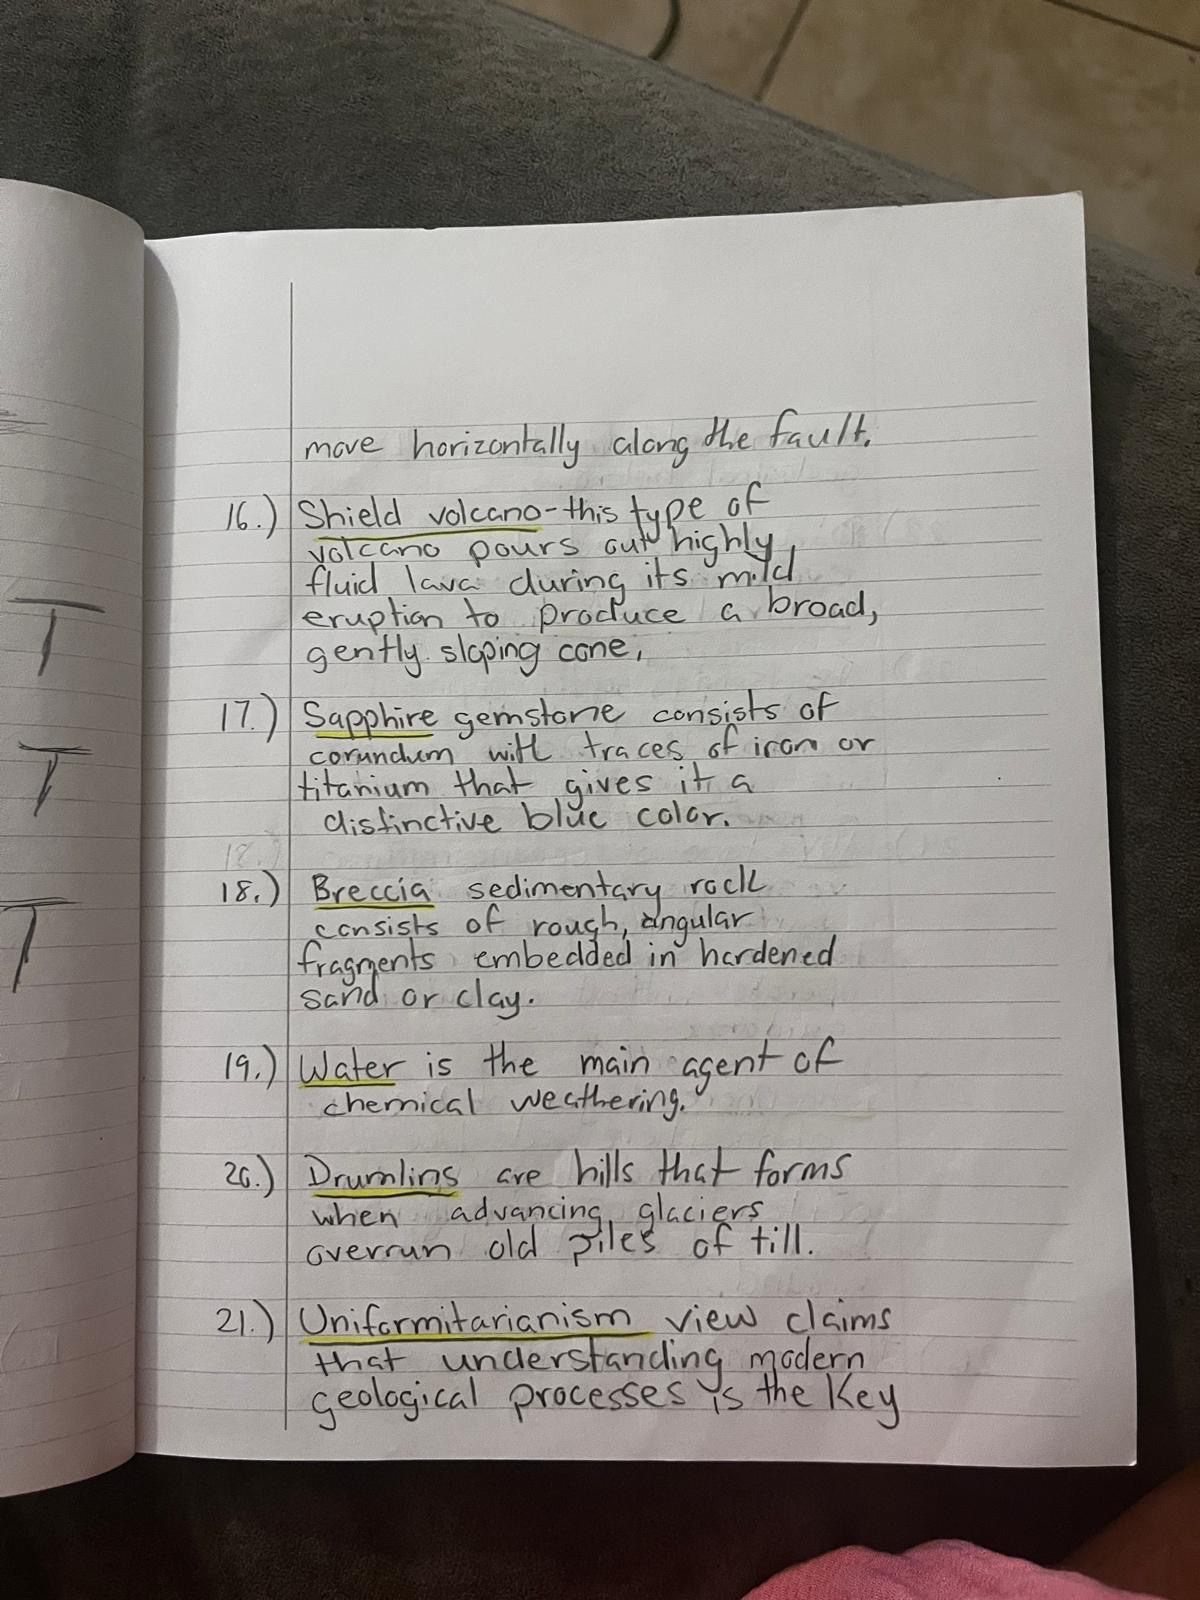 move horizontally along the fault.
16.) Shield volcano-this type of
volcano pours out highly
fluid lava during its mild
eruption to produce a broad,
gently sloping cone.
17.) Sapphire gemstone consists of
corundum with traces of iron or
titanium that gives it a
distinctive blue color.
18.) Breccia sedimentary rock
consists of rough, angular
fragments embedded in hardened
sand or clay.
19.) Water is the main agent of
chemical weathering.
20.) Drumlins are hills that forms
when advancing glaciers
overrun old piles of till.
21.) Uniformitarianism view claims
that understanding modern
geological processes is the Key
T
T
T